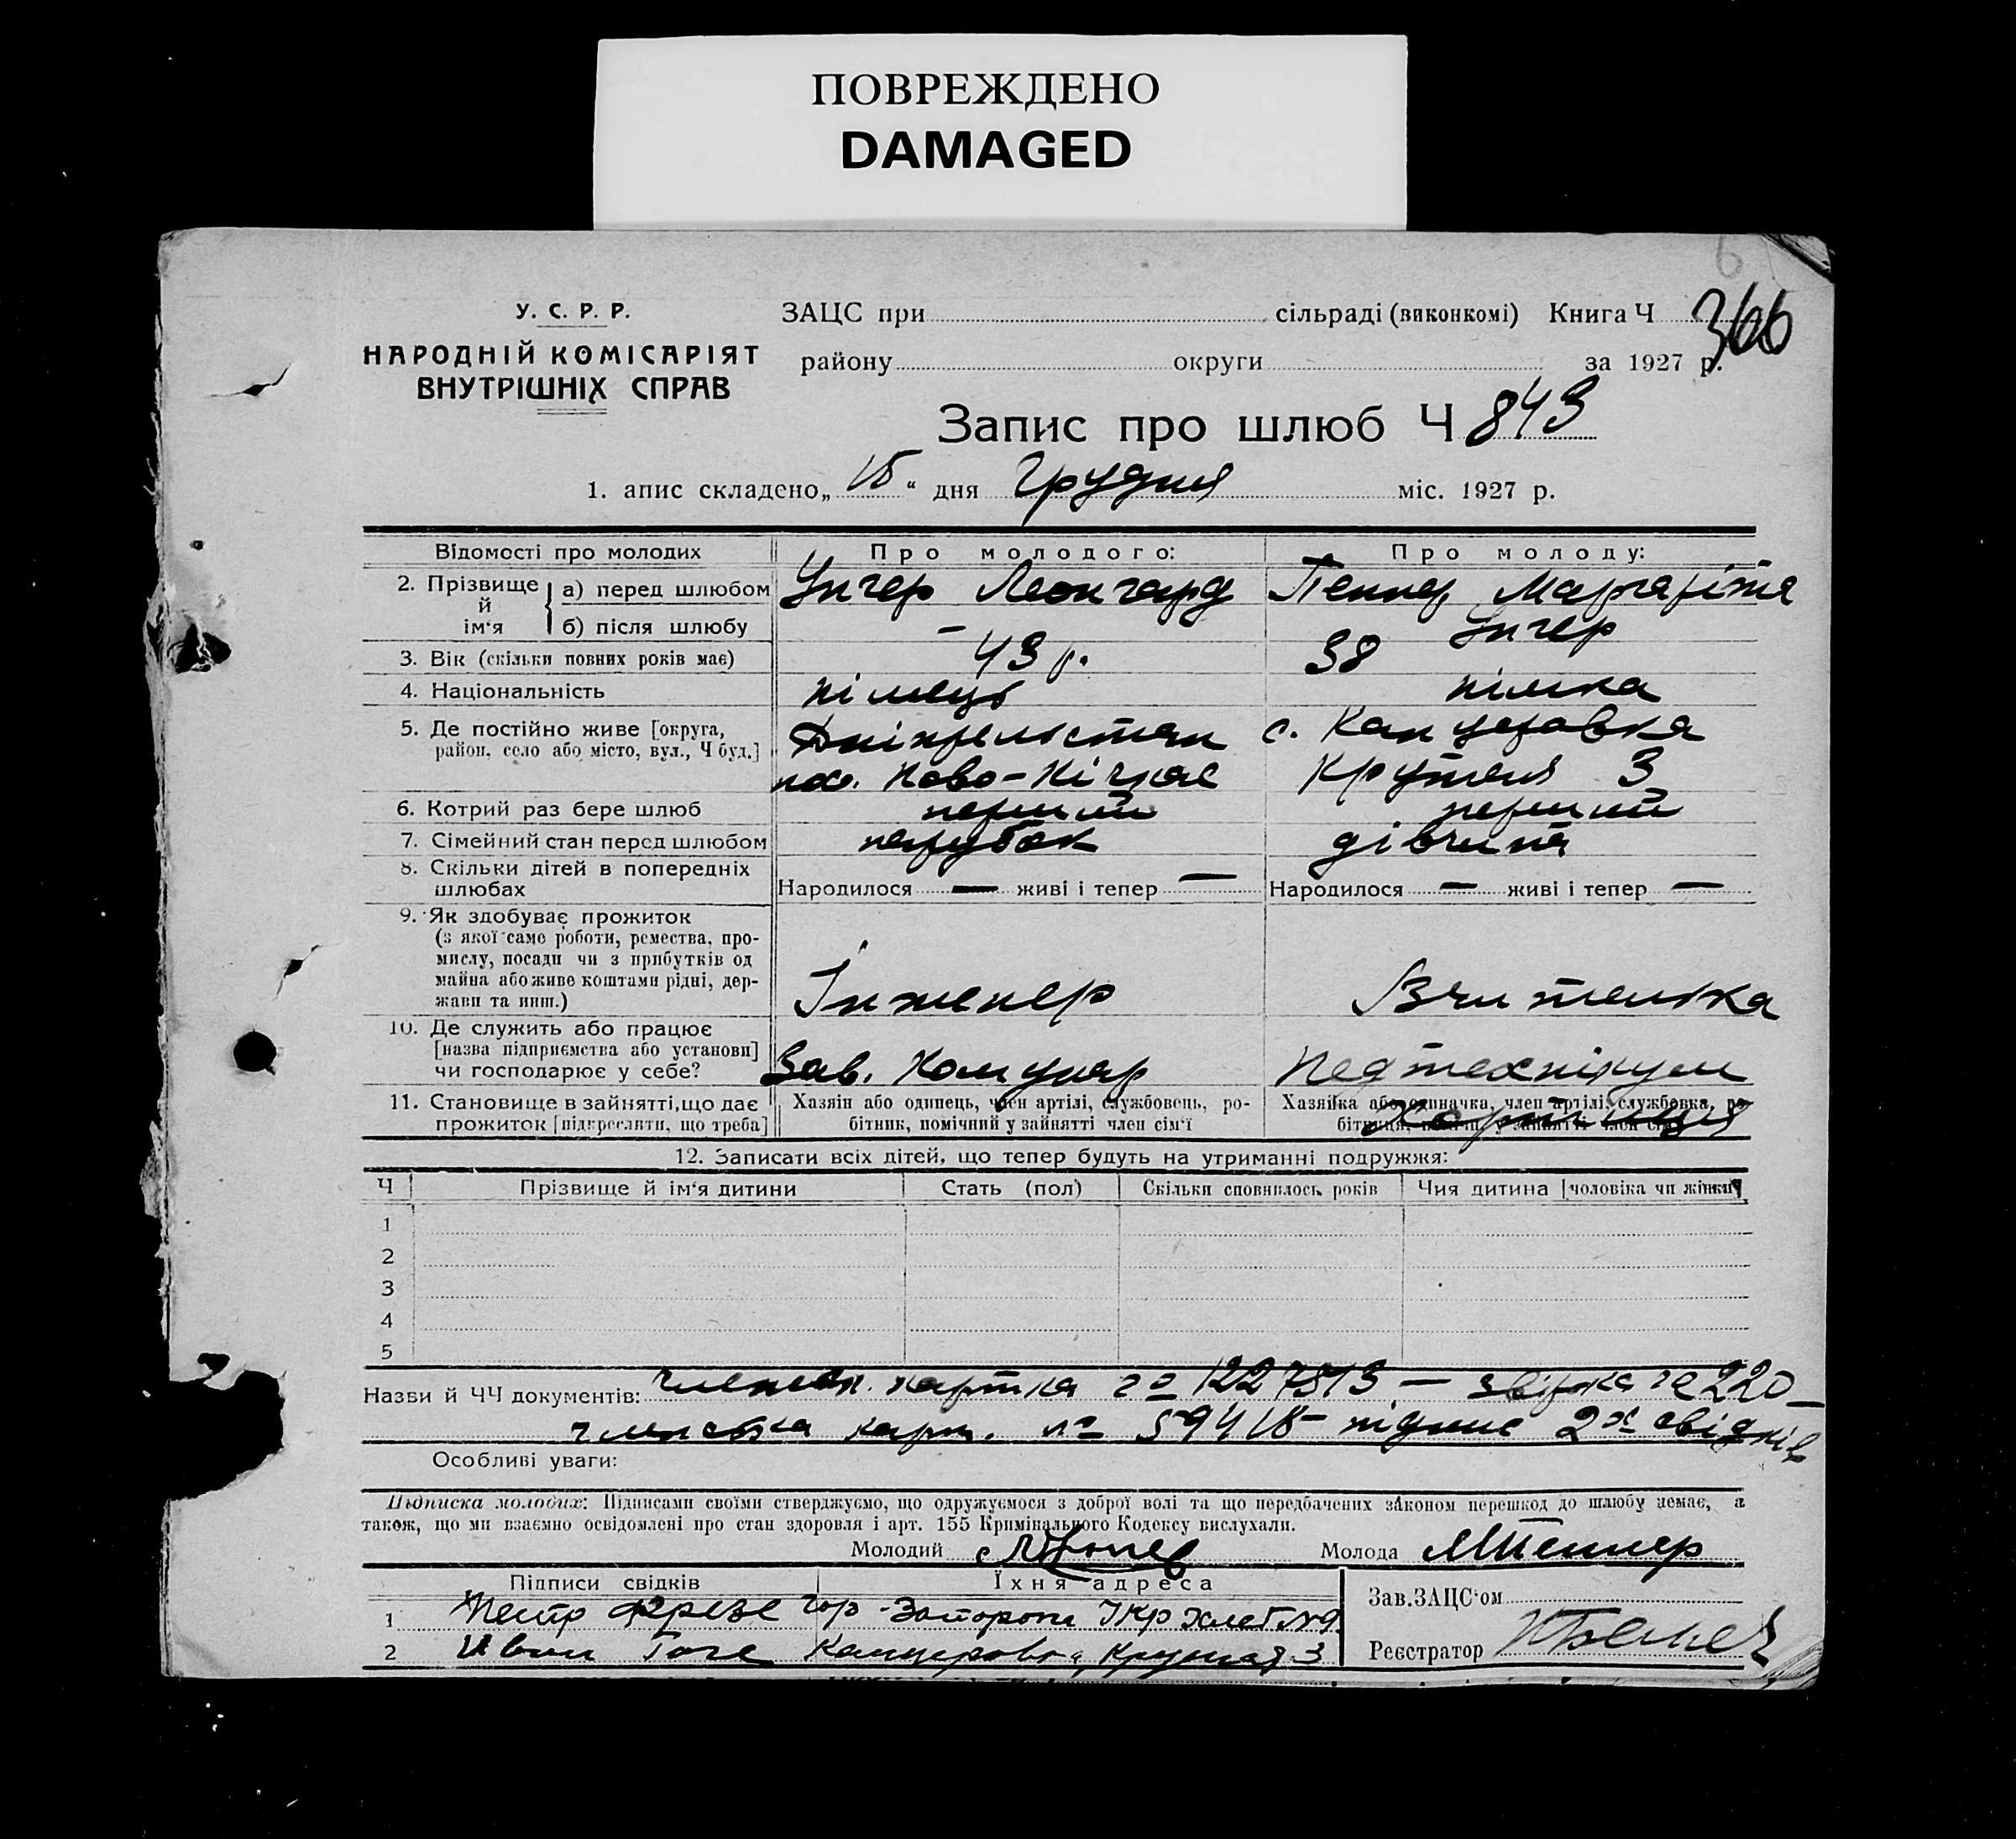 ПОВРЕЖДЕНО
DAMAGED
366
У. С. Р. Р.
НАРОДНІЙ КОМІСАРІЯТ
ВНУТРІШНІХ СПРАВ
ЗАЦС при сільраді (виконкомі) Книга Ч
району округи за 1927 р.
Запис про шлюб Ч 843
1. апис складено „15“ дня Грудня міс. 1927 р.
Відомості про молодих Про молодого: Про молоду:
2. Прізвище й ім‘я а) перед шлюбом Унгер Леонгард Пеннер Маргаріта
б) після шлюбу – Унгер
3. Вік (скільки повних років має) 43 р. 38
4. Національність німець німка
5. Де постійно живе [округа, район, село або місто, вул., Ч буд.] Дніпрельстан с. Канцеровка
Ново-Кічкас Крутая 3
6. Котрий раз бере шлюб перший перший
7. Сімейний стан перед шлюбом парубок дівчина
8. Скільки дітей в попередніх шлюбах Народилося — живі і тепер — Народилося — живі і тепер —
9. Як здобуває прожиток
(з якої саме роботи, ремества, про-
мислу, посади чи з прибутків од
майна або живе коштами рідні, дер-
жави та инш.) Інженер Вчителька
10. Де служить або працює
[назва підприємства або установи]
чи господарює у себе? Зав. Комунар Педтехнікум
Хортиця
11. Становище в зайнятті, що дає прожиток [підкреслити, що треба] Хазяїн або одинець, член артілі, службовець, ро-
бітник, помічний у зайнятті член сім‘ї
Хазяйка або одиначка, член артілі, службовка, ро-
12. Записати всіх дітей, що тепер будуть на утриманні подружжя:
Ч Прізвище й ім‘я дитини Стать (пол) Скільки сповнилось років Чия дитина [чоловіка чи жінки]
1
2
3
4
5
Назви й ЧЧ документів: членськ. картка № 1227513 — звірка № 220 –
членська карт. № 59418 – підпис 2х свідків
Особливі уваги:
Підписка молодих: Підписами своїми стверджуємо, що одружуємося з доброї волі та що передбачених законом перешкод до шлюбу немає, а
також, що ми взаємно освідомлені про стан здоровля і арт. 155 Кримінального Кодексу вислухали.
Молодий Молода МПеннер
Підписи свідків Їхня адреса Зав.ЗАЦС‘ом
1 Петр Фризе гор. Запорож
2 Иван Канцеровка, Крутая 3 Реєстратор